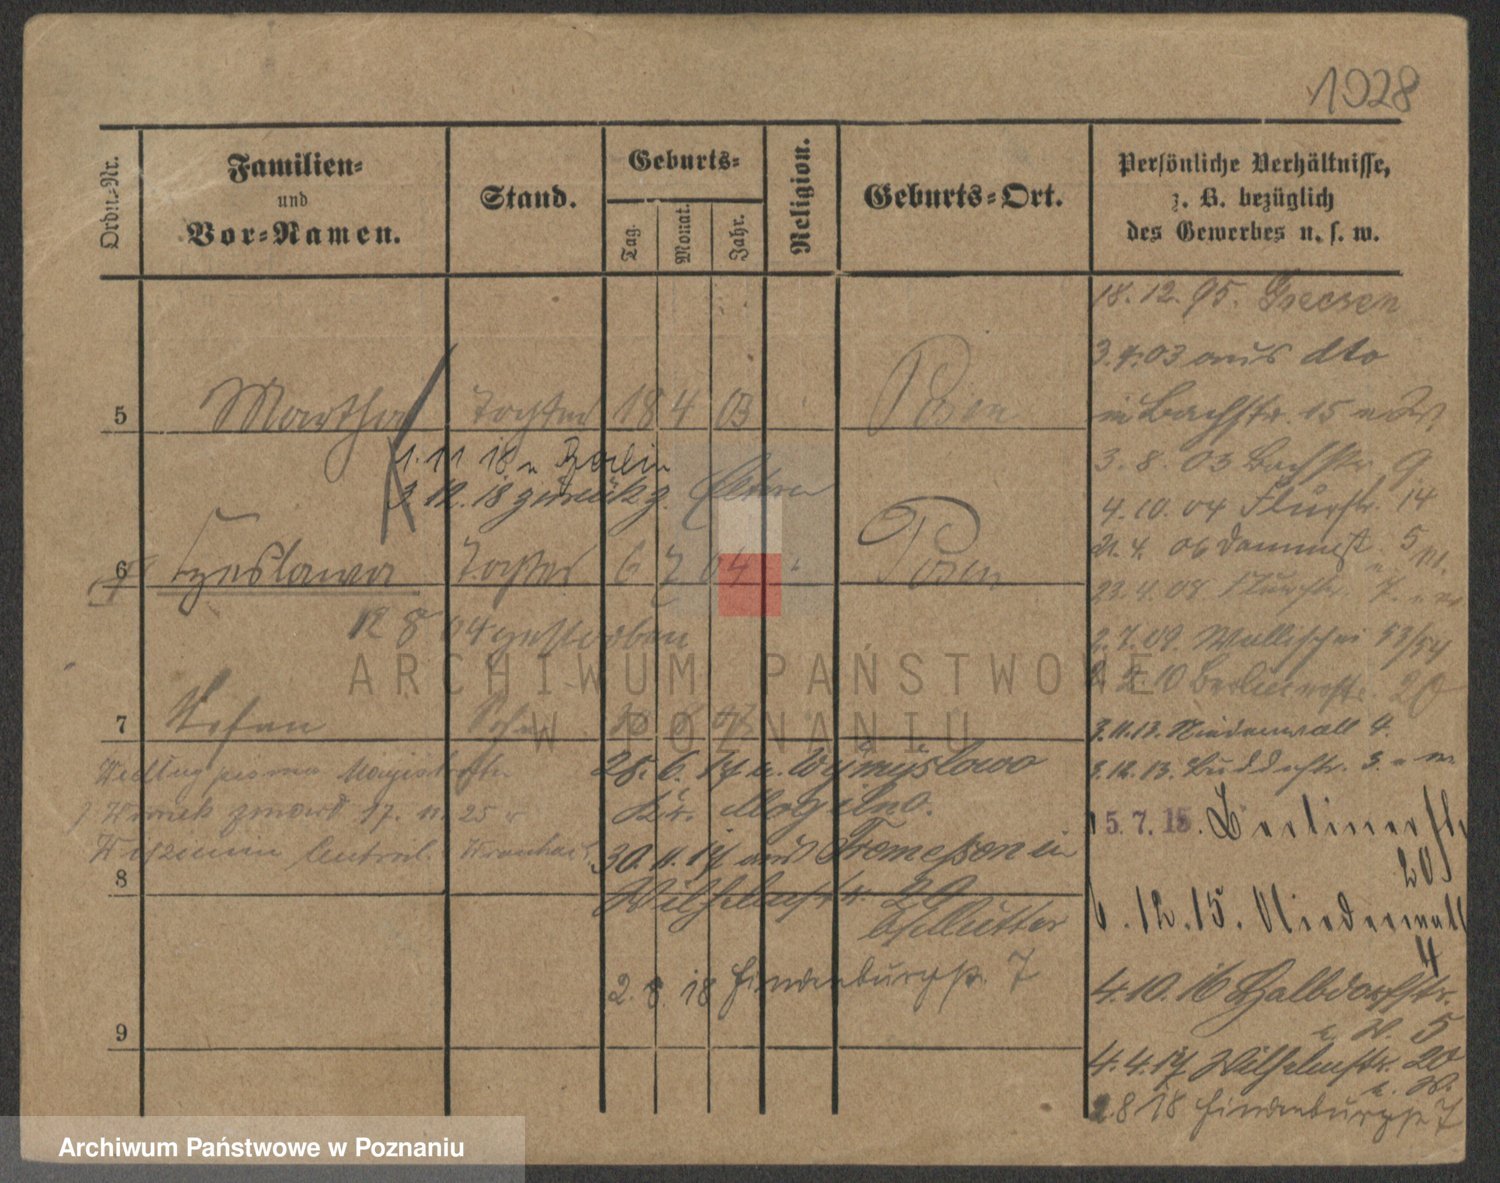 1928
Ordn.-Nr.
Familien-
und
Vor-Namen.
Stand.
Geburts-
Tag.
Monat.
Jahr.
Religion.
Geburts-Ort.
Persönliche Verhältnisse,
z. B. bezüglich
des Gewerbes u. s. w.
18. 12. 95. Gnesen
3. 4. 03 aus dto
5 Martha Tochter 18 4 03 Posen
in Bachstr. 15
1. 11 18 n Berlin
3. 8. 03 Bachstr. 9
3. 12. 18 zurück z. Eltern
4. 10. 04 Flurstr. 14
6 Czeslawa Tochter 6 7 04 Posen
21. 4. 06 Dammstr. 5
23. 4. 08 Flurstr. 7.
12 8 04 gestorben
2. 7. 09. Wallischei 53/54
10 Berlinerstr. 20
7 Stefan Sohn
3. 11. 13. Niederwall 4.
28. 6. 17 n. Wymyslowo
3. 12. 13. Buddestr. 3.
Kr. Mogilno.
17. 11. 25
15. 7. 15. Berlinerstr
20
30. 11. 17 aus Tremessen in
8 Wilhelmstr. 20
b/Mutter
6. 12. 15. Niederwall
4
2. 8. 18 Hindenburgstr. 7
4. 10. 16 Halbdorfstr.
5
9
4. 4. 17 Wilhelmstr. 20
2. 8 18 Hindenburgstr 7
ARCHIWUM PAŃSTWOWE
W POZNANIU
Archiwum Państwowe w Poznaniu